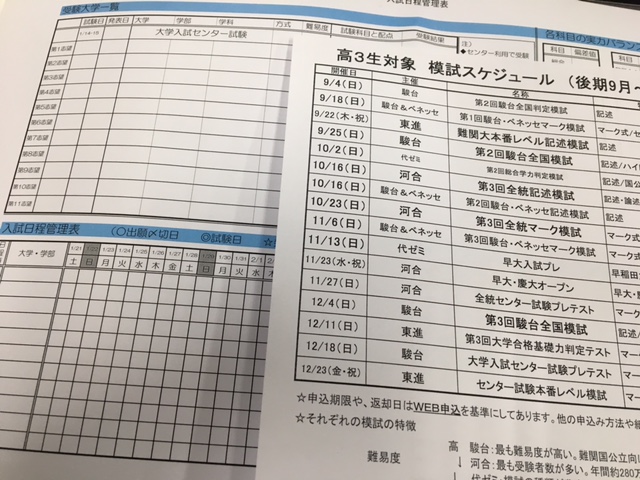 入試日程管理表
受験大学一覧
試験日 発表日 大学 学部 学科 方式 難易度 試験科目と配点 受験結果
1/14・15 大学入試センター試験
注)
◆センター利用で受験
各科目の実力バラン
科目 偏差値 科目
第1志望
第2志望
第3志望
第4志望
第5志望
第6志望
第7志望
第8志望
第9志望
第10志望
第11志望
入試日程管理表 (〇出願〆切日 ◎試験日
大学・学部
1/21 1/22 1/23 1/24 1/25 1/26 1/27 1/28 1/29 1/30 1/31 2/1
土 日 月 火 水 木 金 土 日 月 火 水
高3生対象 模試スケジュール (後期9月~
開催日 主催 名称
9/4(日) 駿台 第2回駿台全国判定模試 記述
9/18(日) 駿台&ベネッセ 第1回駿台・ベネッセマーク模試 マーク式/セ
9/22(木・祝) 東進 難関大本番レベル記述模試 記述
9/25(日) 駿台 第2回駿台全国模試 記述/ハイ
10/2(日) 代ゼミ 第2回総合学力判定模試 記述/国
10/16(日) 河合 第3回全統記述模試 記述・論
10/16(日) 駿台&ベネッセ 第2回駿台・ベネッセ記述模試 記述
10/23(日) 河合 第3回全統マーク模試 マーク式
11/6(日) 駿台&ベネッセ 第3回駿台・ベネッセマーク模試 マーク式
11/13(日) 代ゼミ 早大入試プレ
11/23(水・祝) 河合 早大・慶大オープン 早稲田
11/27(日) 河合 全統センター試験プレテスト マー
12/4(日) 駿台 第3回駿台全国模試
12/11(日) 東進 第3回大学合格基礎力判定テスト マーク
12/18(日) 駿台 大学入試センター試験プレテスト マー
12/23(金・祝) 東進 センター試験本番レベル模試 マー
☆申込期限や、返却日はWEB申込を基準にしてあります。他の申込み方法や
☆それぞれの模試の特徴
難易度 高 駿台:最も難易度が高い。難関国公立向け
↓ 河合:最も受験者数が多い。年間約280万